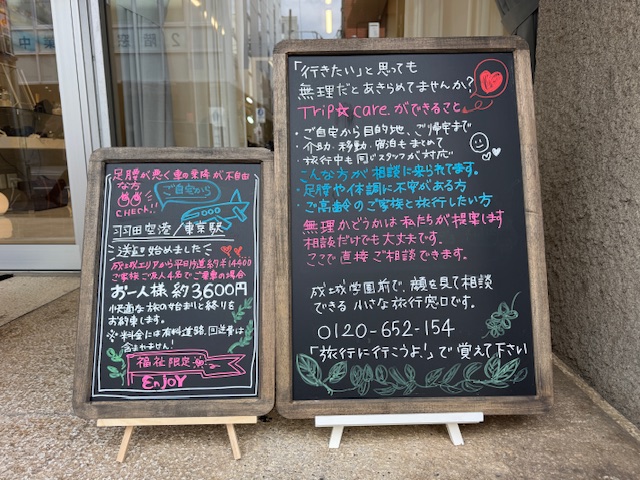 足腰が悪く車の乗降が不自由
な方
CHECK!!
ご自宅から
羽田空港/東京駅
送迎始めました
成城エリアから平日片道約¥14400
ご家族ご友人4名でご乗車の場合
お一人様 約3600円
快適な旅の始まりと終りを
お約束します。
※料金には有料道路、回送費は
含みません!
福祉限定
ENJOY
「行きたい」と思っても
無理だとあきらめてませんか?
Trip☆Care.ができること
・ご自宅から目的地、ご帰宅まで
・介助・移動・宿泊もまとめて
・旅行中も同じスタッフが対応
こんな方が相談に来られてます。
・足腰や体調に不安がある方
・ご高齢のご家族と旅行したい方
無理かどうかは私たちが提案します
相談だけでも大丈夫です。
ここで直接ご相談できます。
成城学園前で、顔を見て相談
できる小さな旅行窓口です。
0120-652-154
「旅行に行こうよ!」で覚えて下さい